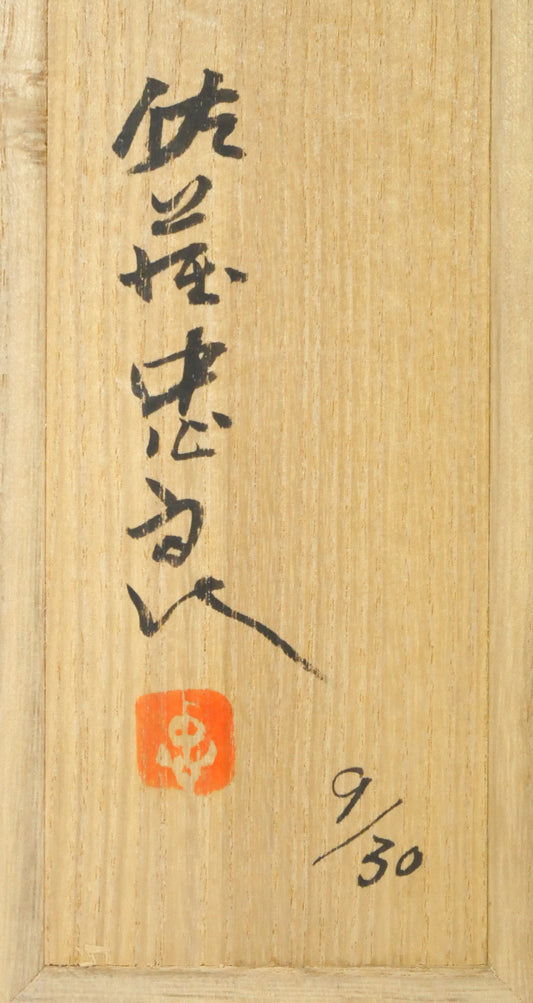 佐藤忠良
忠
9/30